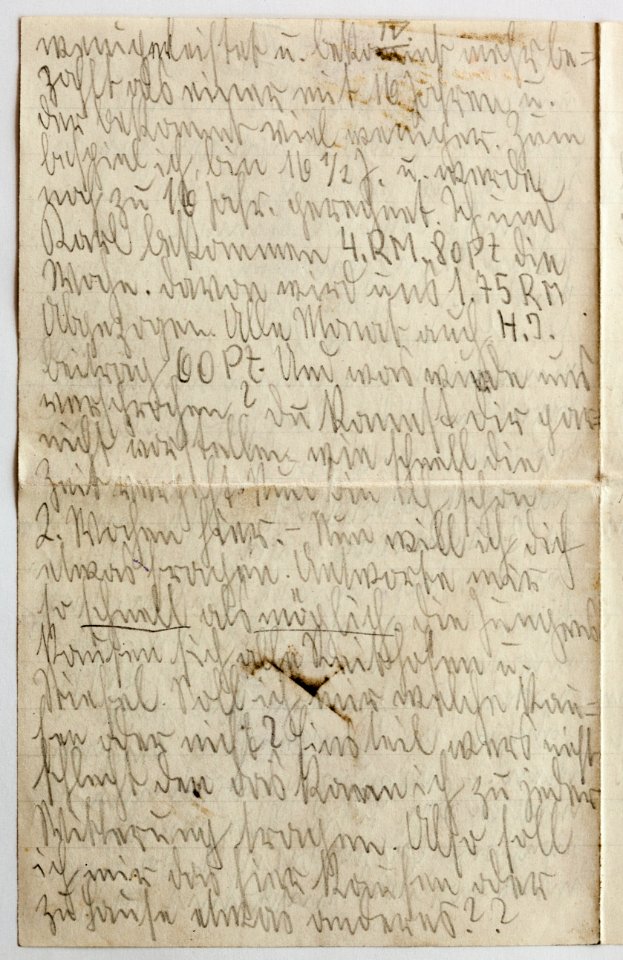 IV.
weniger leistet u. bekommt mehr be=
zahlt als einer mit 16 Jahren u.
der bekommt viel weniger. Zum
beispiel ich, bin 16 1/2 J. u. werde
noch zu 16 Jahr. gerechnet. Ich und
Karl bekommen 4. RM. 80 Pf die
Woche. davon wird uns 1.75 RM
Abgezogen. Alle Monat auch H.J.
beitrag 60 Pf. Und was wurde uns
versprochen? du kannst dir gar
nicht vorstellen wie schnell die
Zeit vergeht. Nun bin ich schon
2. Wochen hier. – Nun will ich dich
etwas fragen. Antworte mir
so schnell als möglich, die Jungens
kaufen sich alle hosen u.
Stiefel. Soll ich mir welche kau=
fen oder nicht? Eins teil wers nicht
schlecht den das kann ich zu jeder
Witterung tragen. Also soll
ich mir das hier kaufen oder
zu hause etwas anderes??